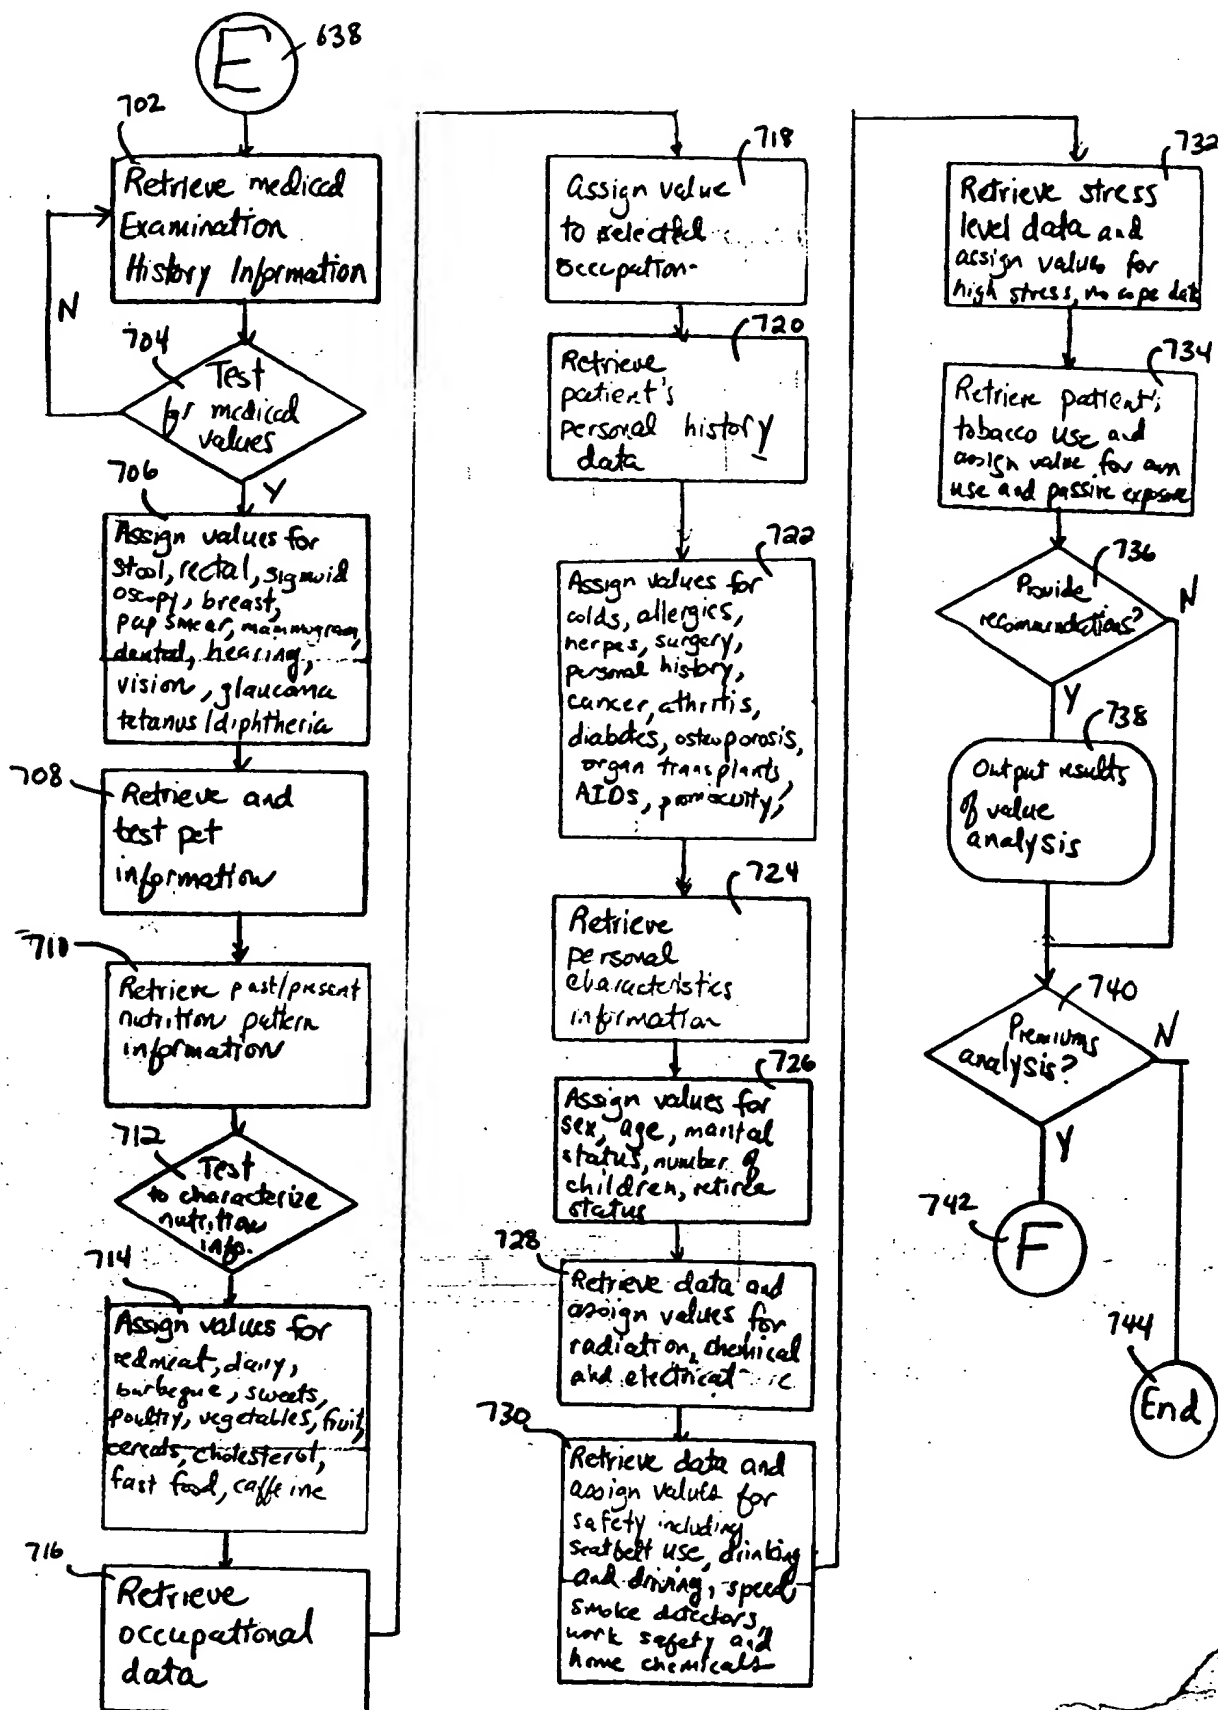 E
638
702
Retrieve medical
Examination
History Information
N
704
Test
for medical
values
Y
706
Assign values for
stool, rectal, sigmoid
oscopy, breast,
pap smear, mammogram,
dental, hearing,
vision, glaucoma
tetanus/diphtheria
708
Retrieve and
test pet
information
710
Retrieve past/present
nutrition pattern
information
712
Test
to characterize
nutrition
info.
714
Assign values for
redmeat, dairy,
barbeque, sweets,
poultry, vegetables, fruit,
cereals, cholesterol,
fast food, caffeine
716
Retrieve
occupational
data
718
Assign value
to selected
occupation
720
Retrieve
patient's
personal history
data
722
Assign values for
colds, allergies,
herpes, surgery,
personal history,
cancer, athritis,
diabetes, osteoporosis,
organ transplants,
AIDs, promiscuity,
724
Retrieve
personal
characteristics
information
726
Assign values for
sex, age, marital
status, number of
children, retiree
status
728
Retrieve data and
assign values for
radiation, chemical
and electrical
730
Retrieve data and
assign values for
safety including
seatbelt use, drinking
and driving, speed,
smoke detectors,
work safety and
home chemicals
732
Retrieve stress
level data and
assign values for
high stress, no cope data
734
Retrieve patient's
tobacco use and
assign value for own
use and passive exposure
736
Provide
recommendations?
N
Y
738
Output results
of value
analysis
740
Premiums
analysis?
N
Y
742
F
744
End